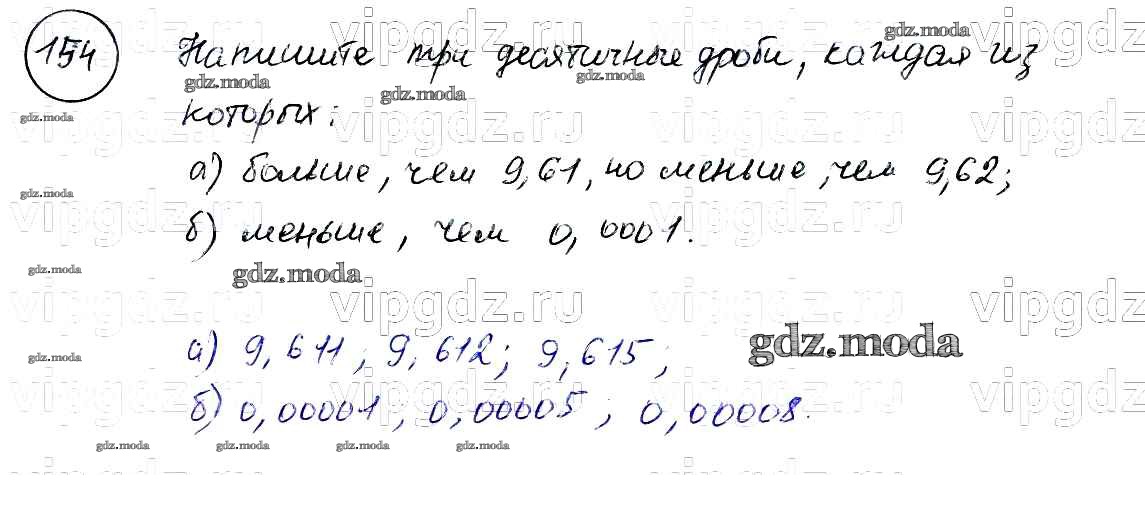 154 Напишите три десятичные дроби, каждая из
которых:
а) больше, чем 9,61, но меньше, чем 9,62;
б) меньше, чем 0,0001.
а) 9,611; 9,612; 9,615;
б) 0,00001; 0,00005; 0,00008.
gdz.moda
vipgdz.ru